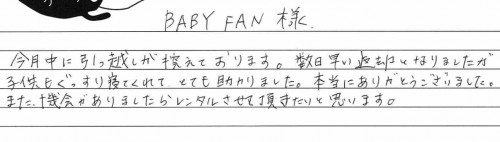 BABY FAN 様.
今月中に引っ越しが控えております。数日早い返却となりましたが
子供もぐっすり寝てくれて とても助かりました。本当にありがとうございました。
また、機会がありましたらレンタルさせて頂きたいと思います。